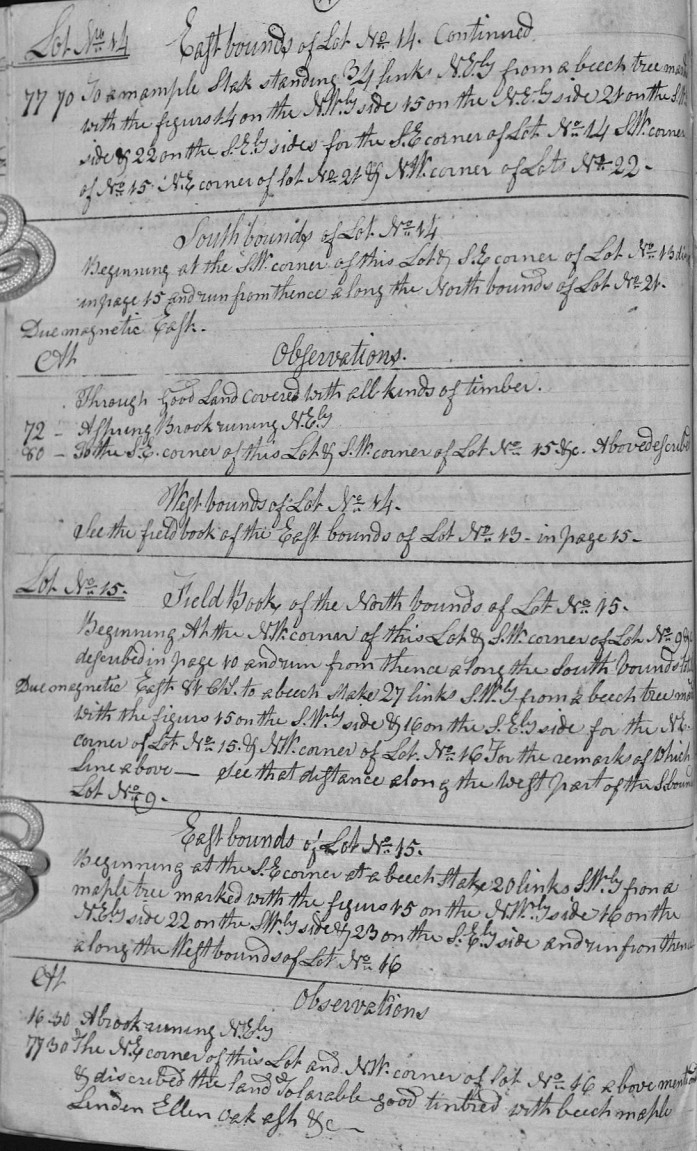 Lot No 14 East bounds of Lot No 14. Continued
77 70 To a mample Stak standing 34 links N.Ely from a beech tree mark
with the figurs 14 on the N.Wly side 15 on the N.Ely side 21 on the S.W
side & 22 on the S.Ely sides for the S.E corner of Lot No 14 S.W. corner
of No 15. N.E corner of lot No 21 & N.W. corner of Lots No 22.
South bounds of Lot No 14
Beginning at the S.W. corner of this Lot & S.E corner of Lot No 13
in page 15 and run from thence along the North bounds of Lot No 21.
Due magnetic East.
At Observations.
Through Good Land covered with all kinds of timber.
72 - A Spring Brook runing N.Ely
80 - To the S.E. corner of this Lot & S.W. corner of Lot No 15 &c. Above described
West bounds of Lot No 14.
See the field book of the East bounds of Lot No 13 - in page 15 -
Lot No 15. Field Book of the North bounds of Lot No 15.
Beginning At the N.W. corner of this Lot & S.W. corner of Lot No 9
described in page 10 and run from thence along the South bounds
Due magnetic East 81 Chs. to a beech stake 27 links S.Wly from a beech tree
with the figurs 15 on the S.Wly side & 16 on the S.Ely side for the N.E.
corner of Lot No 15. & N.W. corner of Lot. No 16 For the remarks of which
Line above — See that distance along the West part of the S. boun
Lot No 9.
East bounds of Lot No 15.
Beginning at the S.E corner at a beech Stake 20 links S.Wly from a
maple tree marked with the figurs 15 on the N.Wly side 16 on the
N.Ely side 22 on the S.Wly side & 23 on the S.Ely side and run from thence
along the West bounds of Lot No 16
At Observations
16 30 A brook runing N.Ely
77 30 The N.E corner of this Lot and N.W. corner of lot No 16 above ment
& discribed the land Tolarable good timbred with beech maple
Linden Ellen oak ash &c —